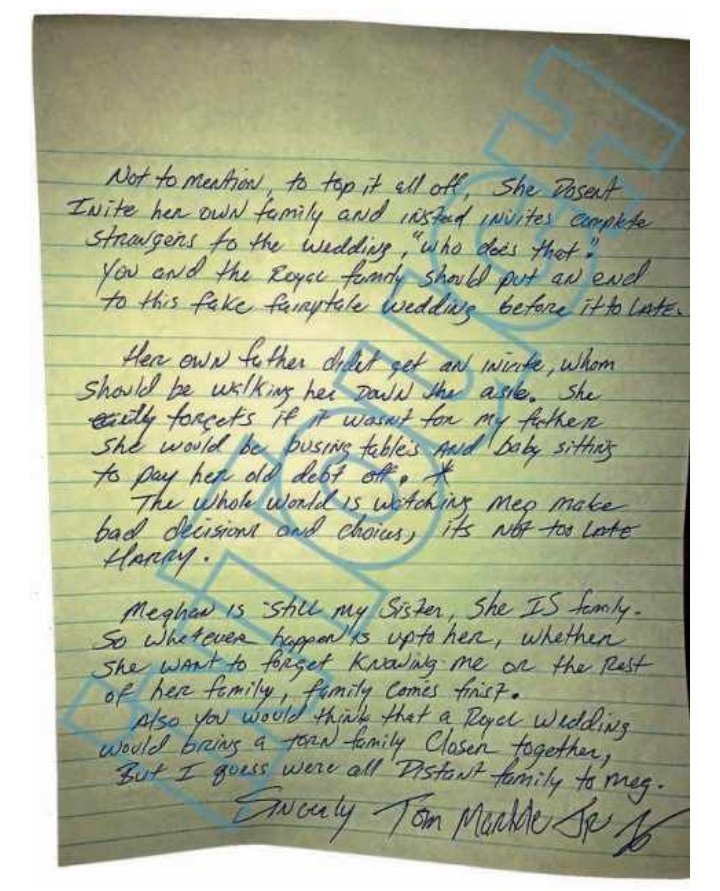 Not to mention, to top it all off, She Dosent
Inite her own family and insted invites complete
strangers to the wedding, "who does that."
You and the Royal family should put an end
to this fake fairytale wedding before it to LATE.
Her own father didet get an invite, whom
should be walking her DOWN the asle. She
forgets if it wasnt for my father
she would be busing tables AND baby sitting
to pay her old debt off. *
The whole world is watching Meg make
bad decisions and choices, its NOT too LATE
HARRY.
Meghan is still my Sister, She IS family.
So whatever happen is upto her, whether
she WANT to forget Knowing me or the Rest
of her family, family comes first.
Also you would think that a Royal Wedding
would bring a torn family Closer together,
But I guess were all Distant family to Meg.
Sincerly Tom Markle Jr
InTouch